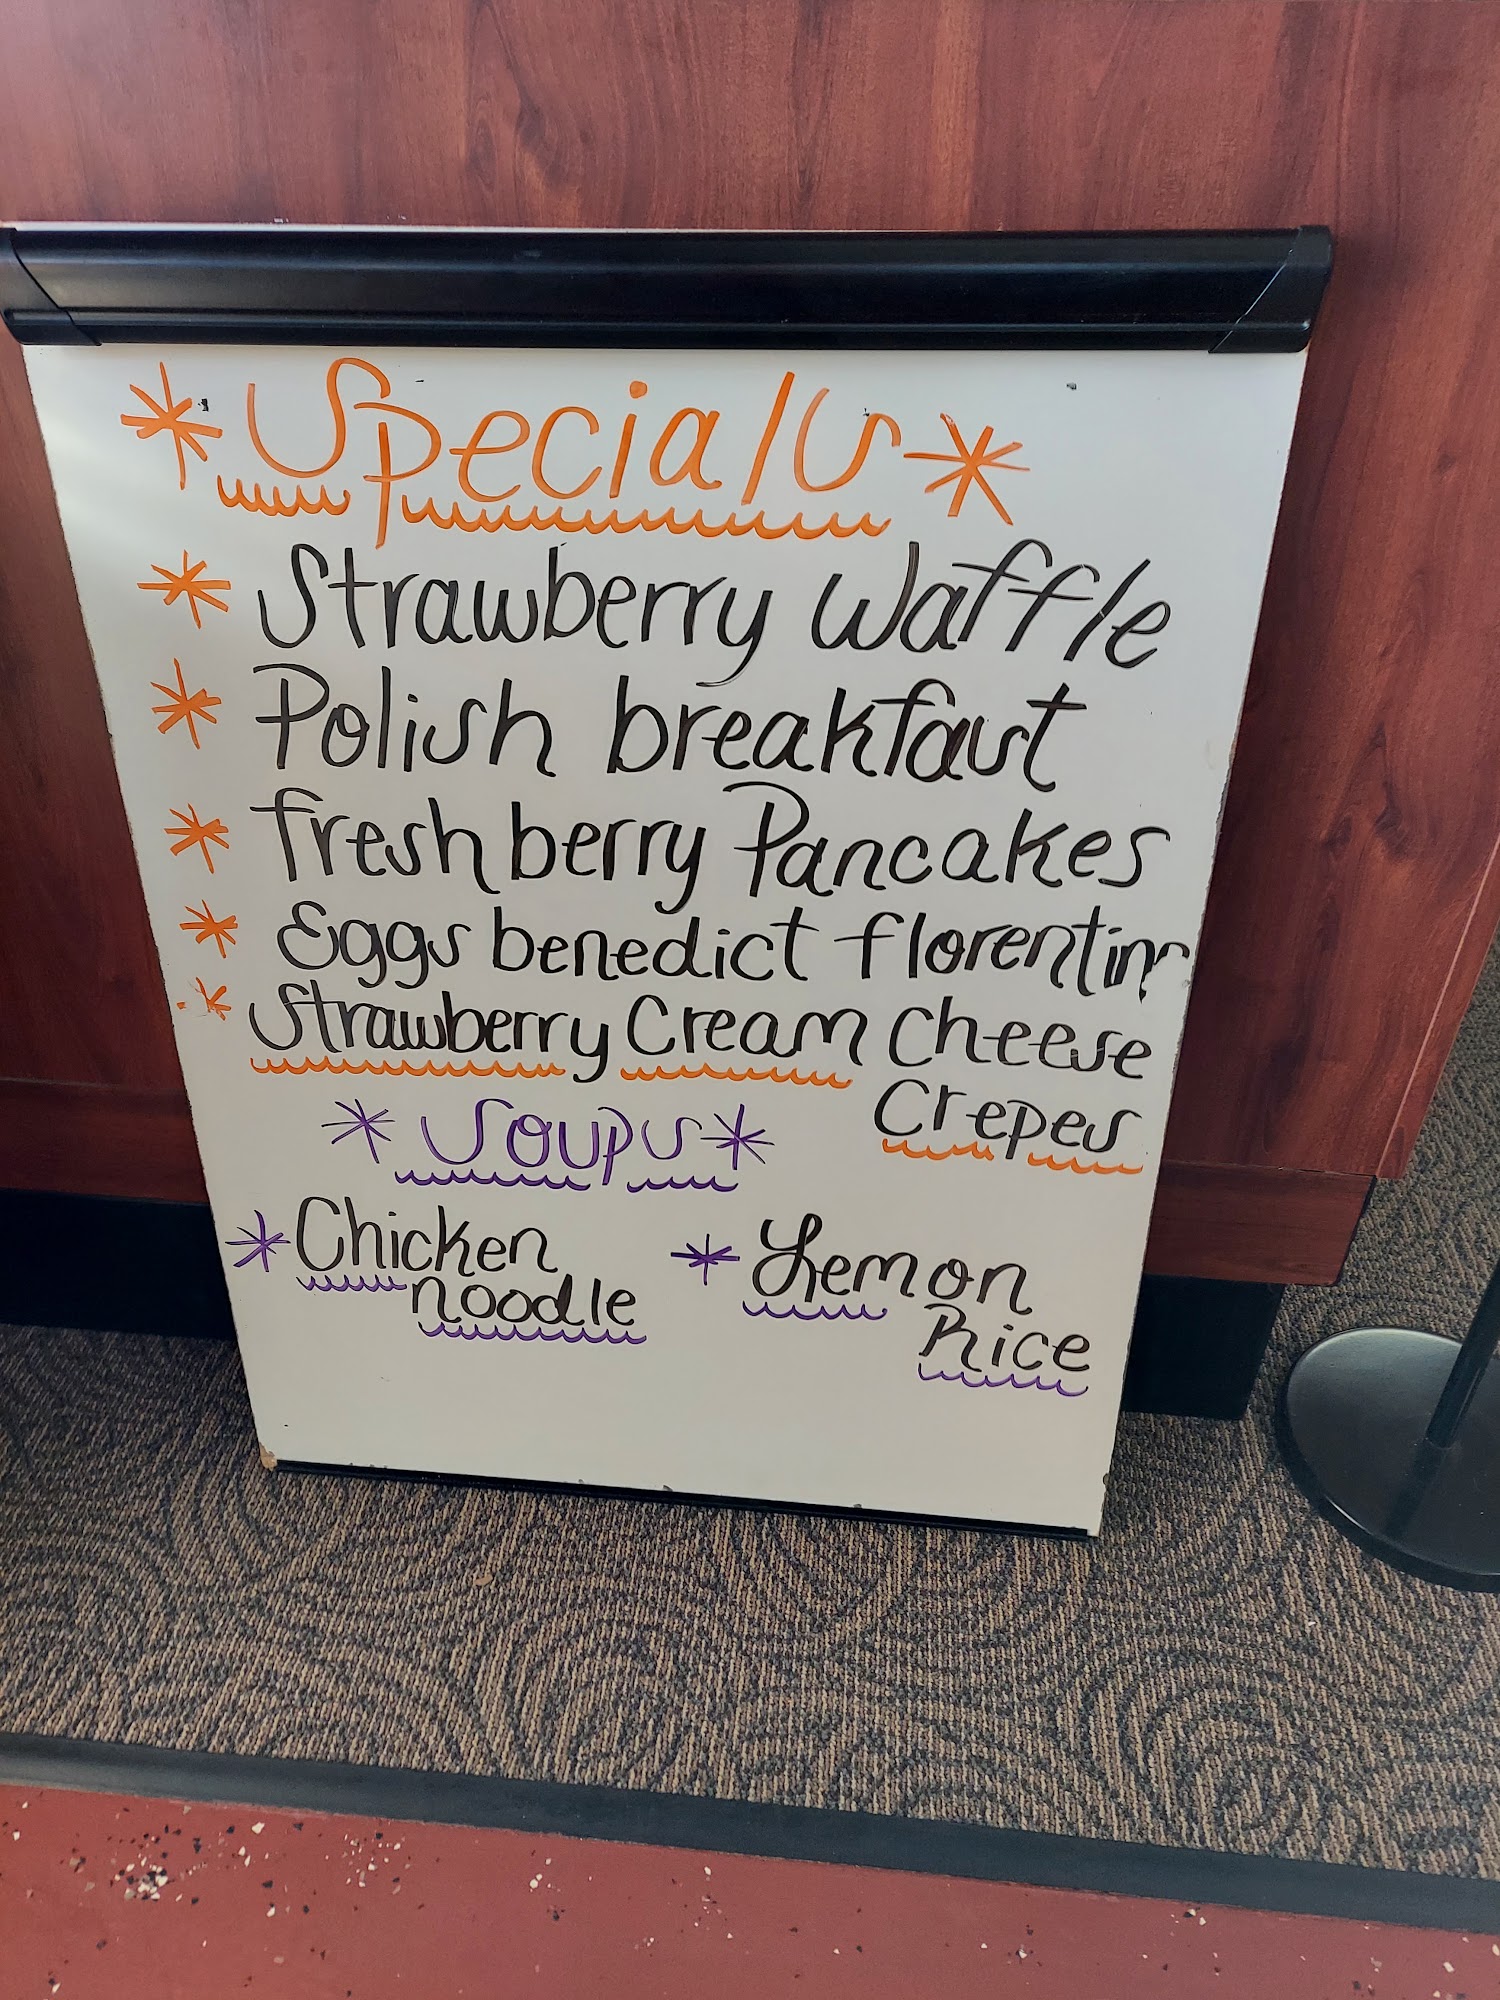 * Specials *
* Strawberry Waffle
* Polish breakfast
* fresh berry Pancakes
* Eggs benedict florentine
* Strawberry Cream Cheese
Crepes
* Soups *
* Chicken
noodle
* Lemon
Rice